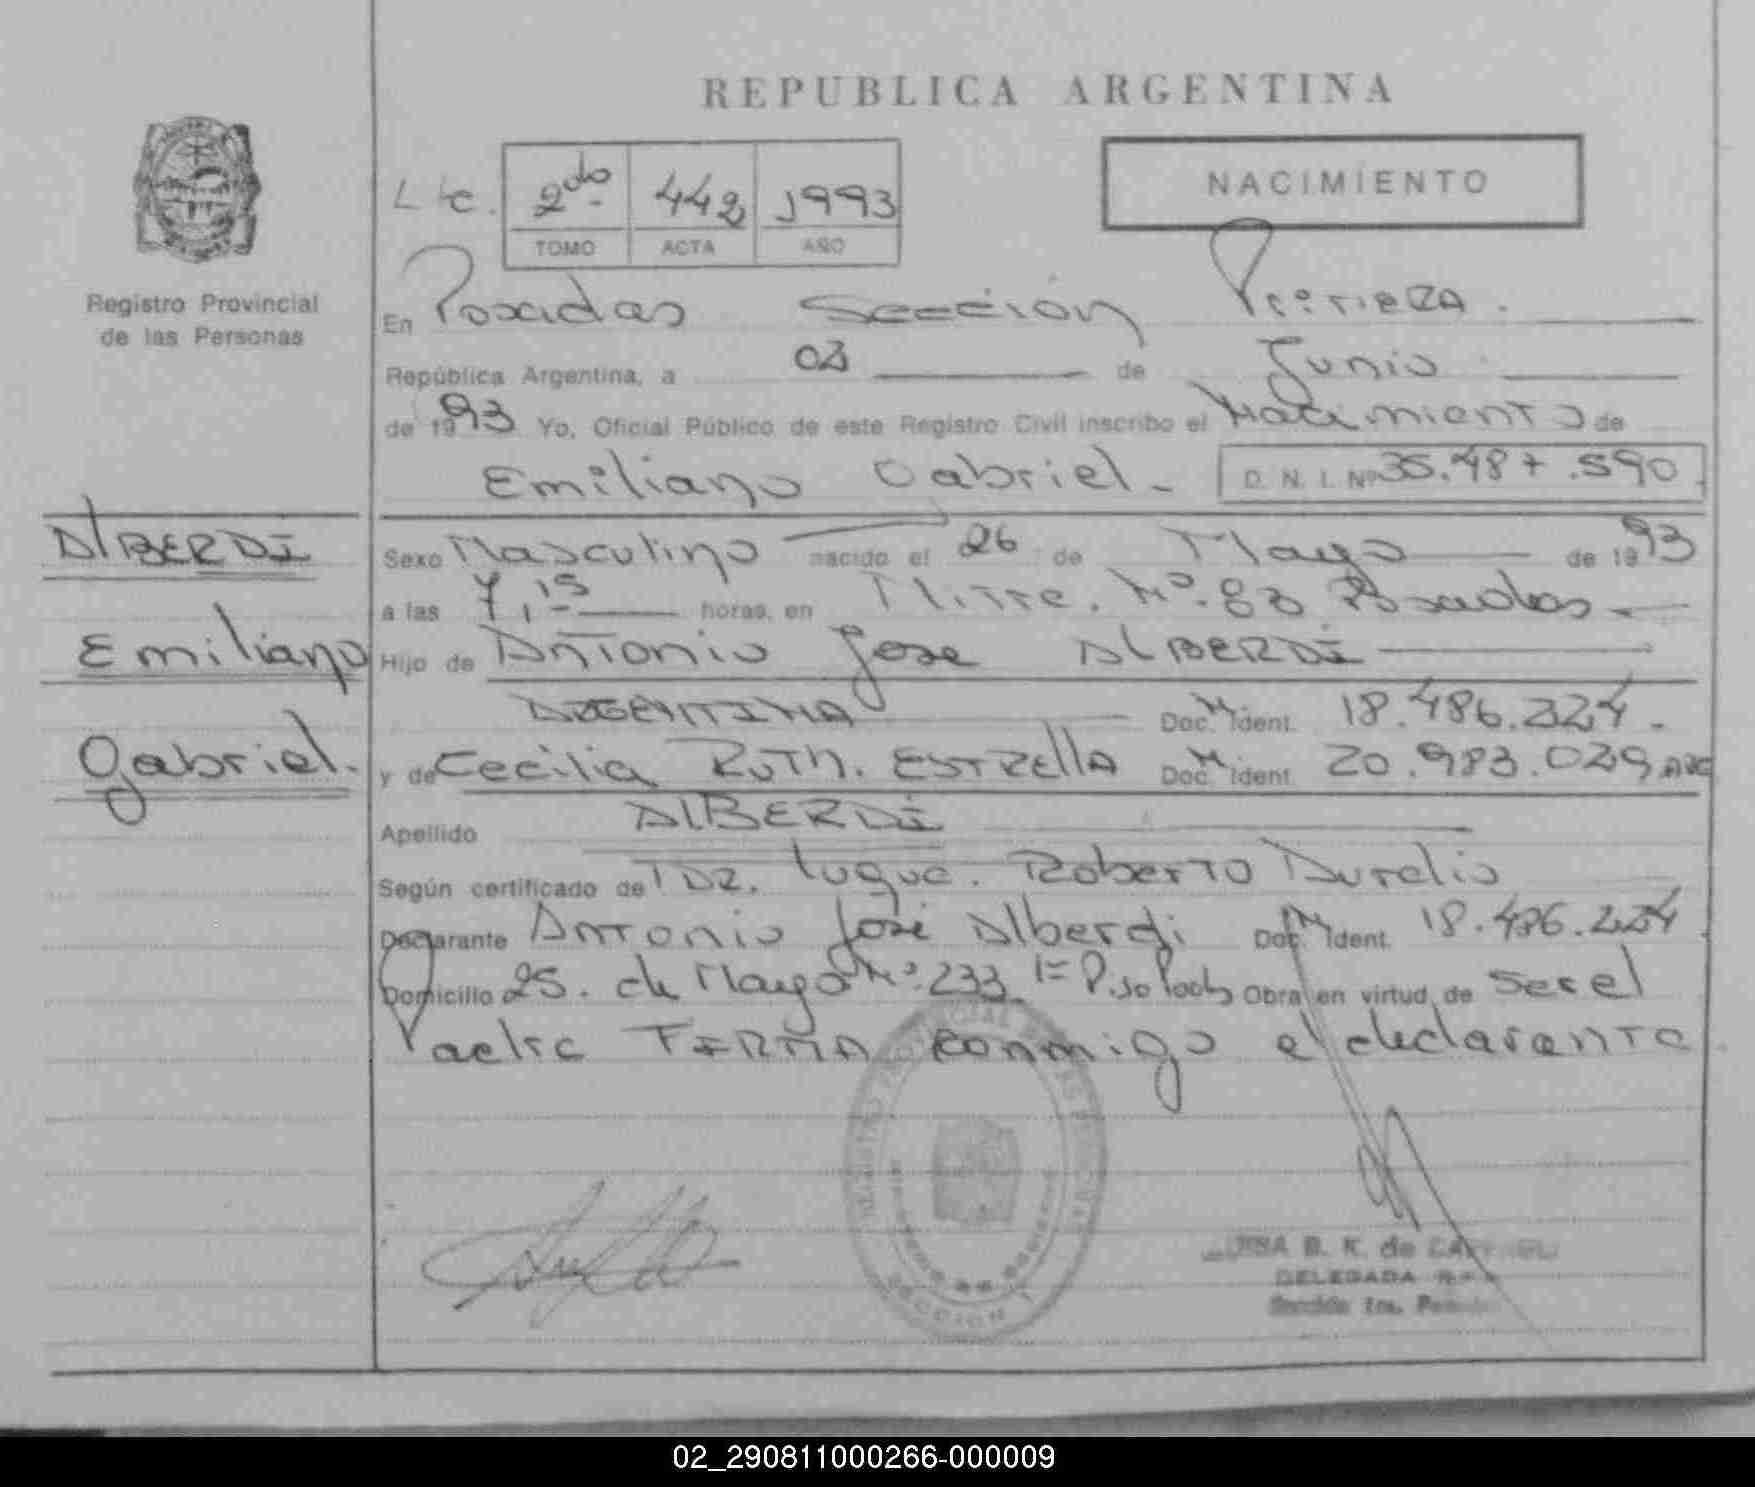 REPUBLICA ARGENTINA
NACIMIENTO
2do. 442 1993
TOMO ACTA AÑO
Registro Provincial
de las Personas
En Posadas Sección Primera.
República Argentina, a 03 de Junio
de 1993 Yo, Oficial Público de este Registro Civil inscribo el Nacimiento de
Emiliano Gabriel. D. N. I. Nº 35.487.590
ALBERDI
Emiliano
Gabriel.
Sexo Masculino nacido el 26 de Mayo de 1993
a las 7,15 horas, en Mitre. Nº. 83 Posadas
Hijo de Antonio Jose ALBERDI
ARGENTINA Doc. M Ident. 18.486.224.
y de Cecilia Ruth. ESTRELLA Doc. M Ident. 20.983.029 ARG
Apellido ALBERDI
Según certificado de DR. Luque. Roberto Aurelio
Declarante Antonio José Alberdi Doc. M Ident. 18.486.224
Domicilio 25. de Mayo Nº. 233 1º Piso Pdas Obra en virtud de ser el
Padre FIRMA conmigo el declarante
REGISTRO PROVINCIAL DE LAS PERSONAS
SECCION 1
B. K. de
DELEGADA R.P.
Sección 1ra. Posadas
02_290811000266-000009